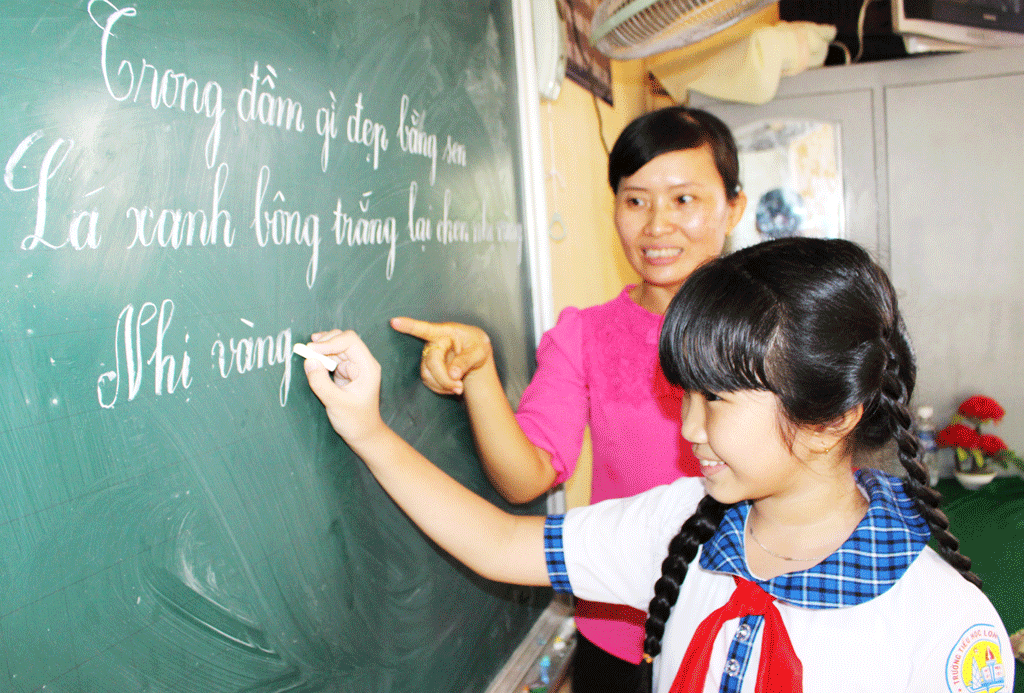 Trong đầm gì đẹp bằng sen
Lá xanh bông trắng lại chen nhị vàng
Nhị vàng
TRƯỜNG TIỂU HỌC LONG